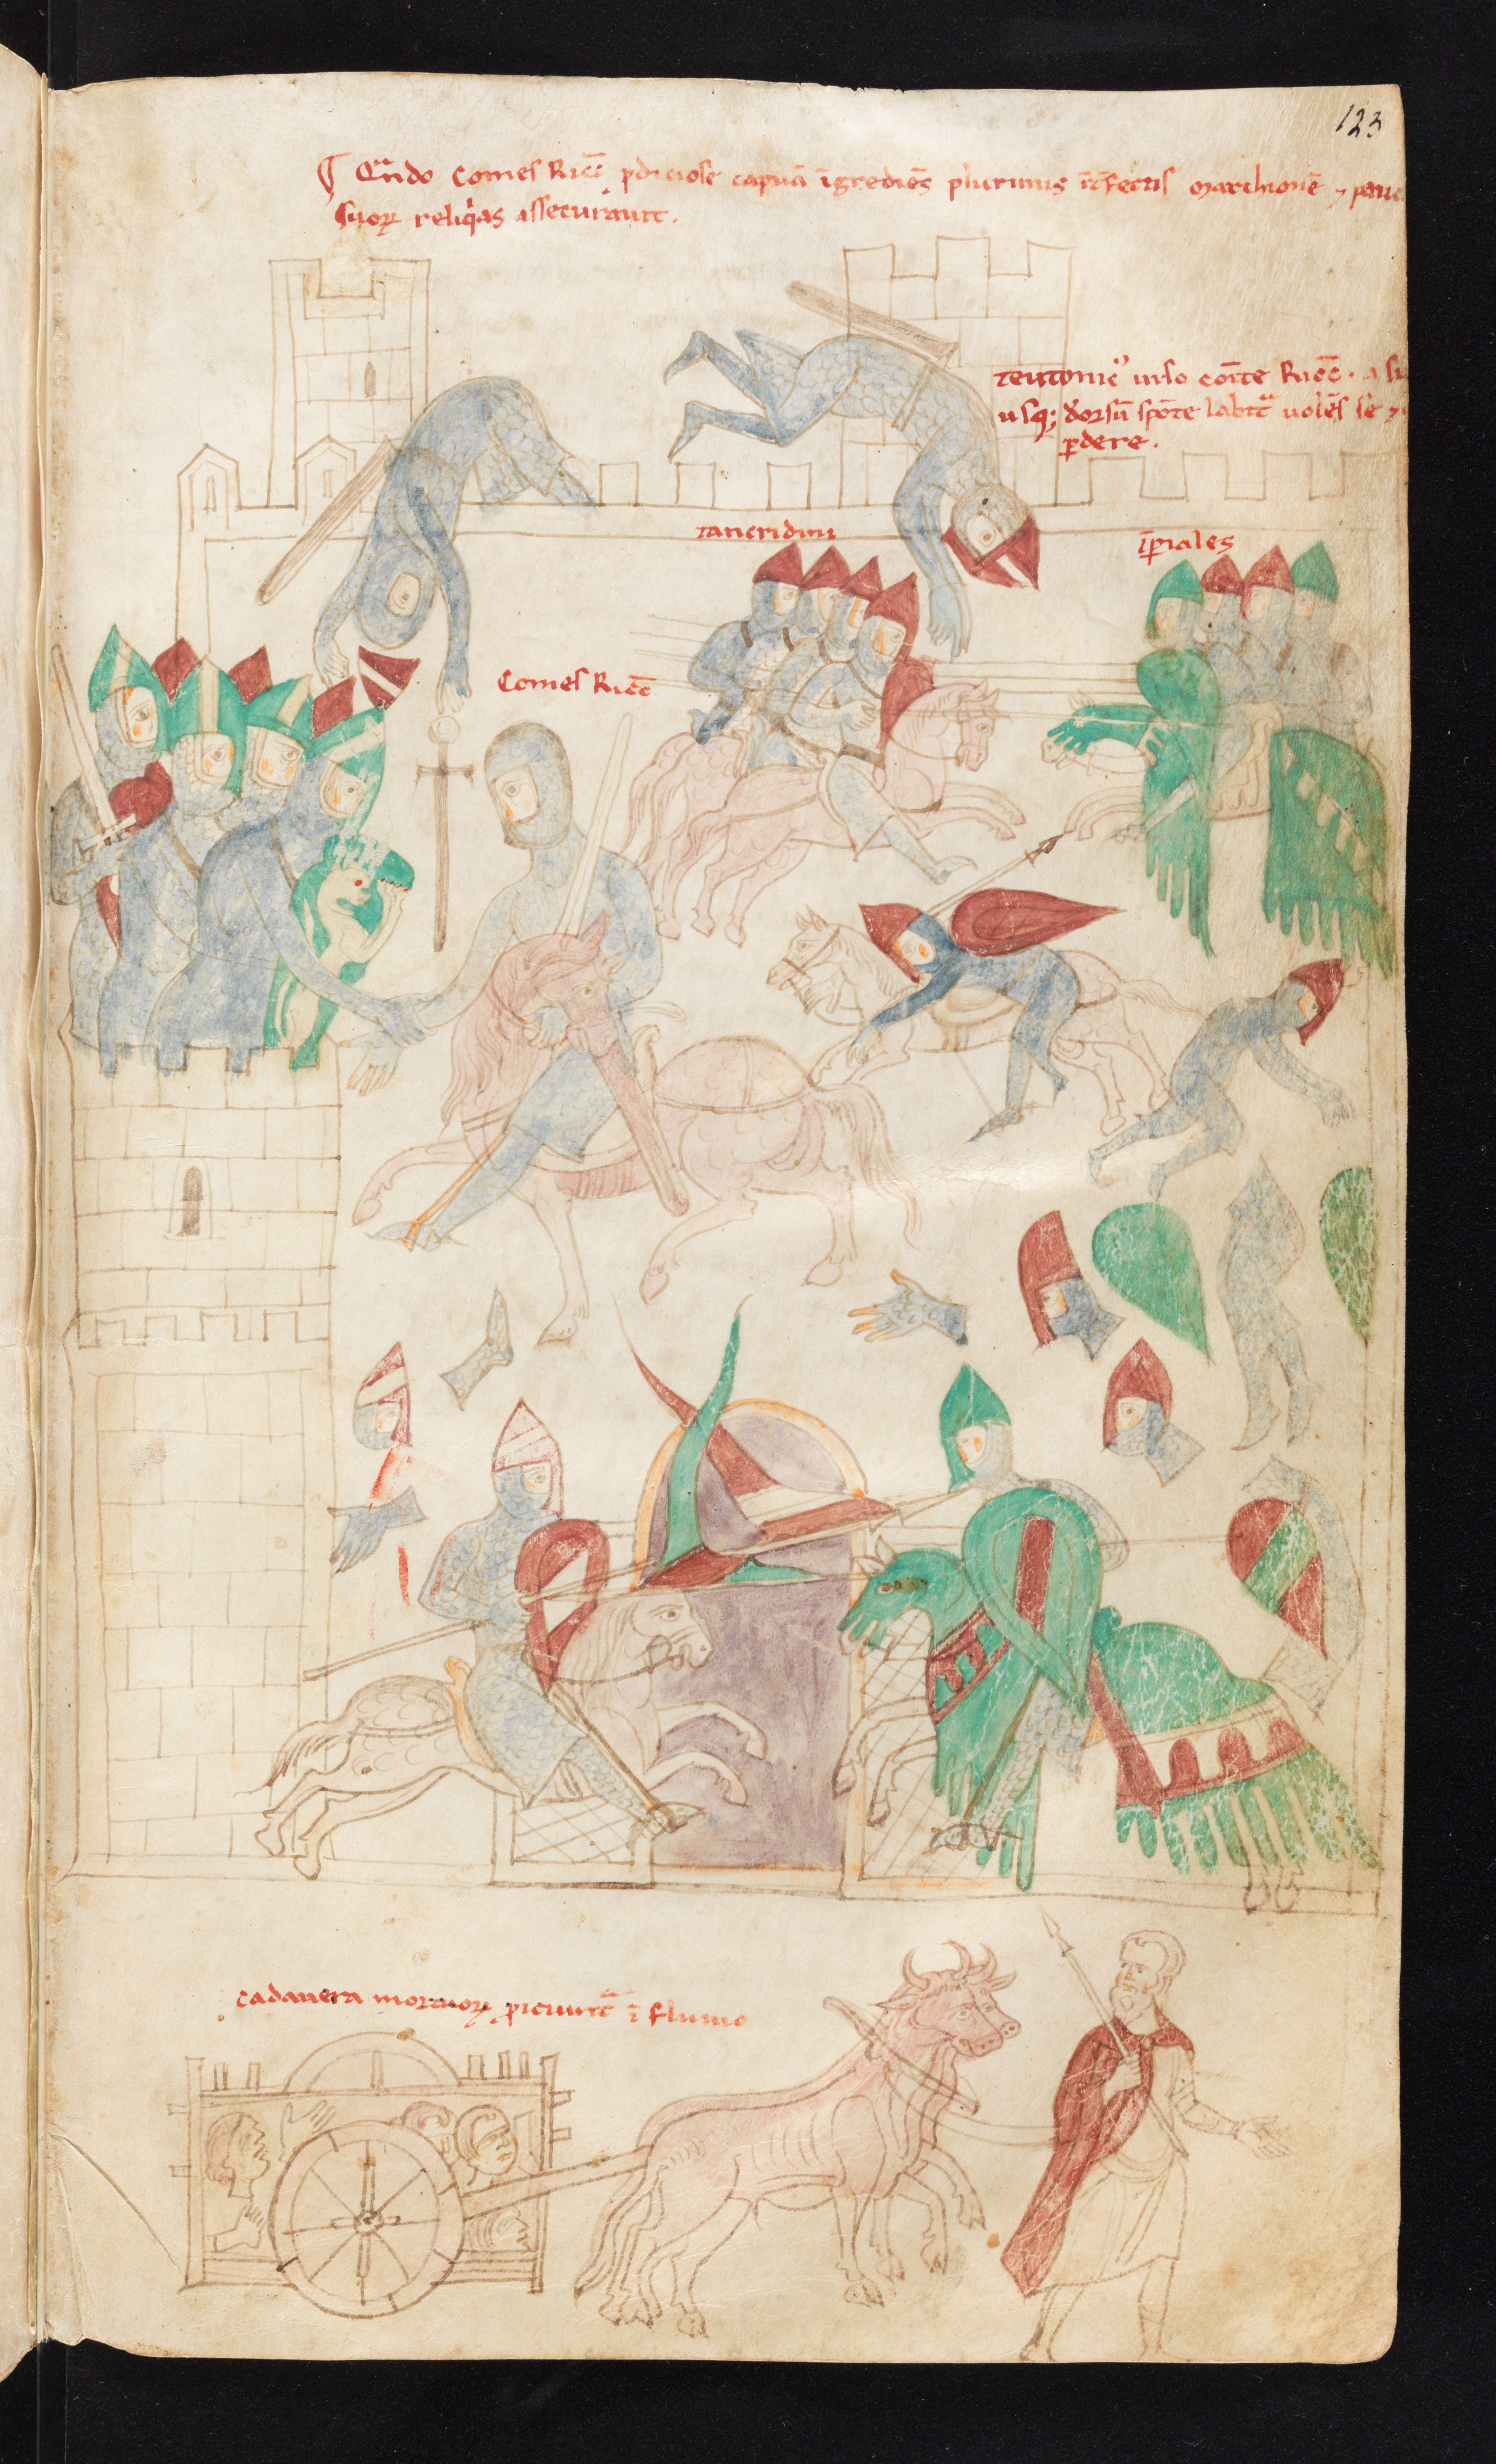 123
¶ Qn̄do Comes Ricc̄ ꝓdiciose capuā īgrediēs plurimis īt̄fectis marchionē ⁊ pauc
suoꝝ reliq̇as assecurauit.
teutonicꝰ uiso comite Ricc̄.
usq; dorsū spōte labit̄ᵃ uolēs se ⁊
ꝑdere.
tancridini
īꝑiales
Comes Ricc̄
cadauera mortuoꝝ ꝓiciunt̄ᵃ ī fluuio